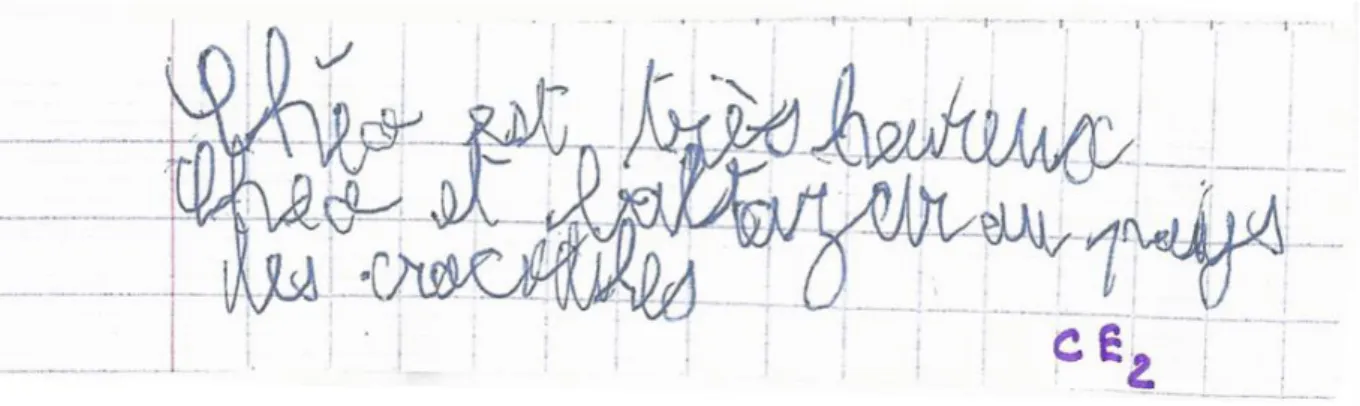 Théo est très heureux
Théo et baltazar au pays
des crocottes
CE2